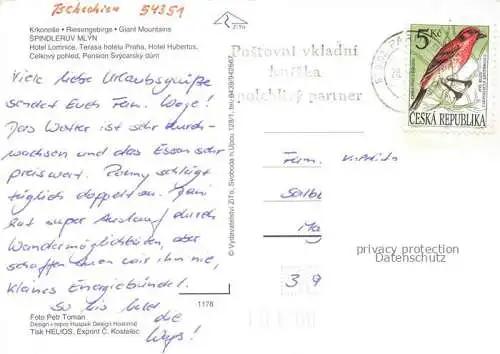 Tschechien 54351
Krkonoše • Riesengebirge • Giant Mountains
ŠPINDLERUV MLÝN
Hotel Lomnice, Terasa hotelu Praha, Hotel Hubertus,
Celkový pohled, Pension Švýcarský dům
Viele liebe Urlaubsgrüße
sendet Euch Fam. Wege!
Das Wetter ist sehr durch-
wachsen und das Essen sehr
preiswert. schlägt
täglich doppelt zu.
hat super Auslauf durch
Wandermöglichkeiten, aber
schaffen tuen wir ihn nie,
kleines Energiebündel.
So bis bald
die
Foto Petr Toman
Design i repro Huspak Design Hostinné
Tisk HELIOS, Export Č. Kostelec
1178
ZiTo
© Vydavatelství ZiTo, Svoboda n.Úpou 128/1, tel.
Poštovní vkladní
knížka
spolehlivý partner
5 Kč
ČESKÁ REPUBLIKA
Fam.
Salb
Mag
39
privacy protection
Datenschutz